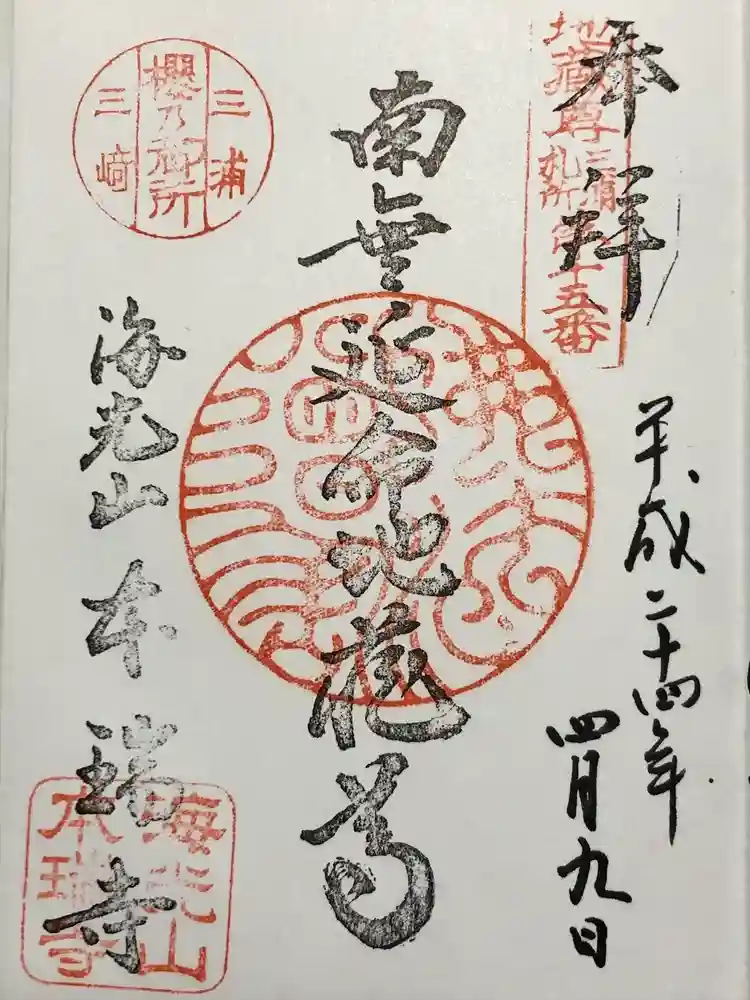 奉拝
地蔵尊
三浦
札所第十五番
平成二十四年
四月九日
南無延命地蔵尊
三浦
櫻乃御所
三﨑
海光山本瑞寺
海光山
本瑞寺